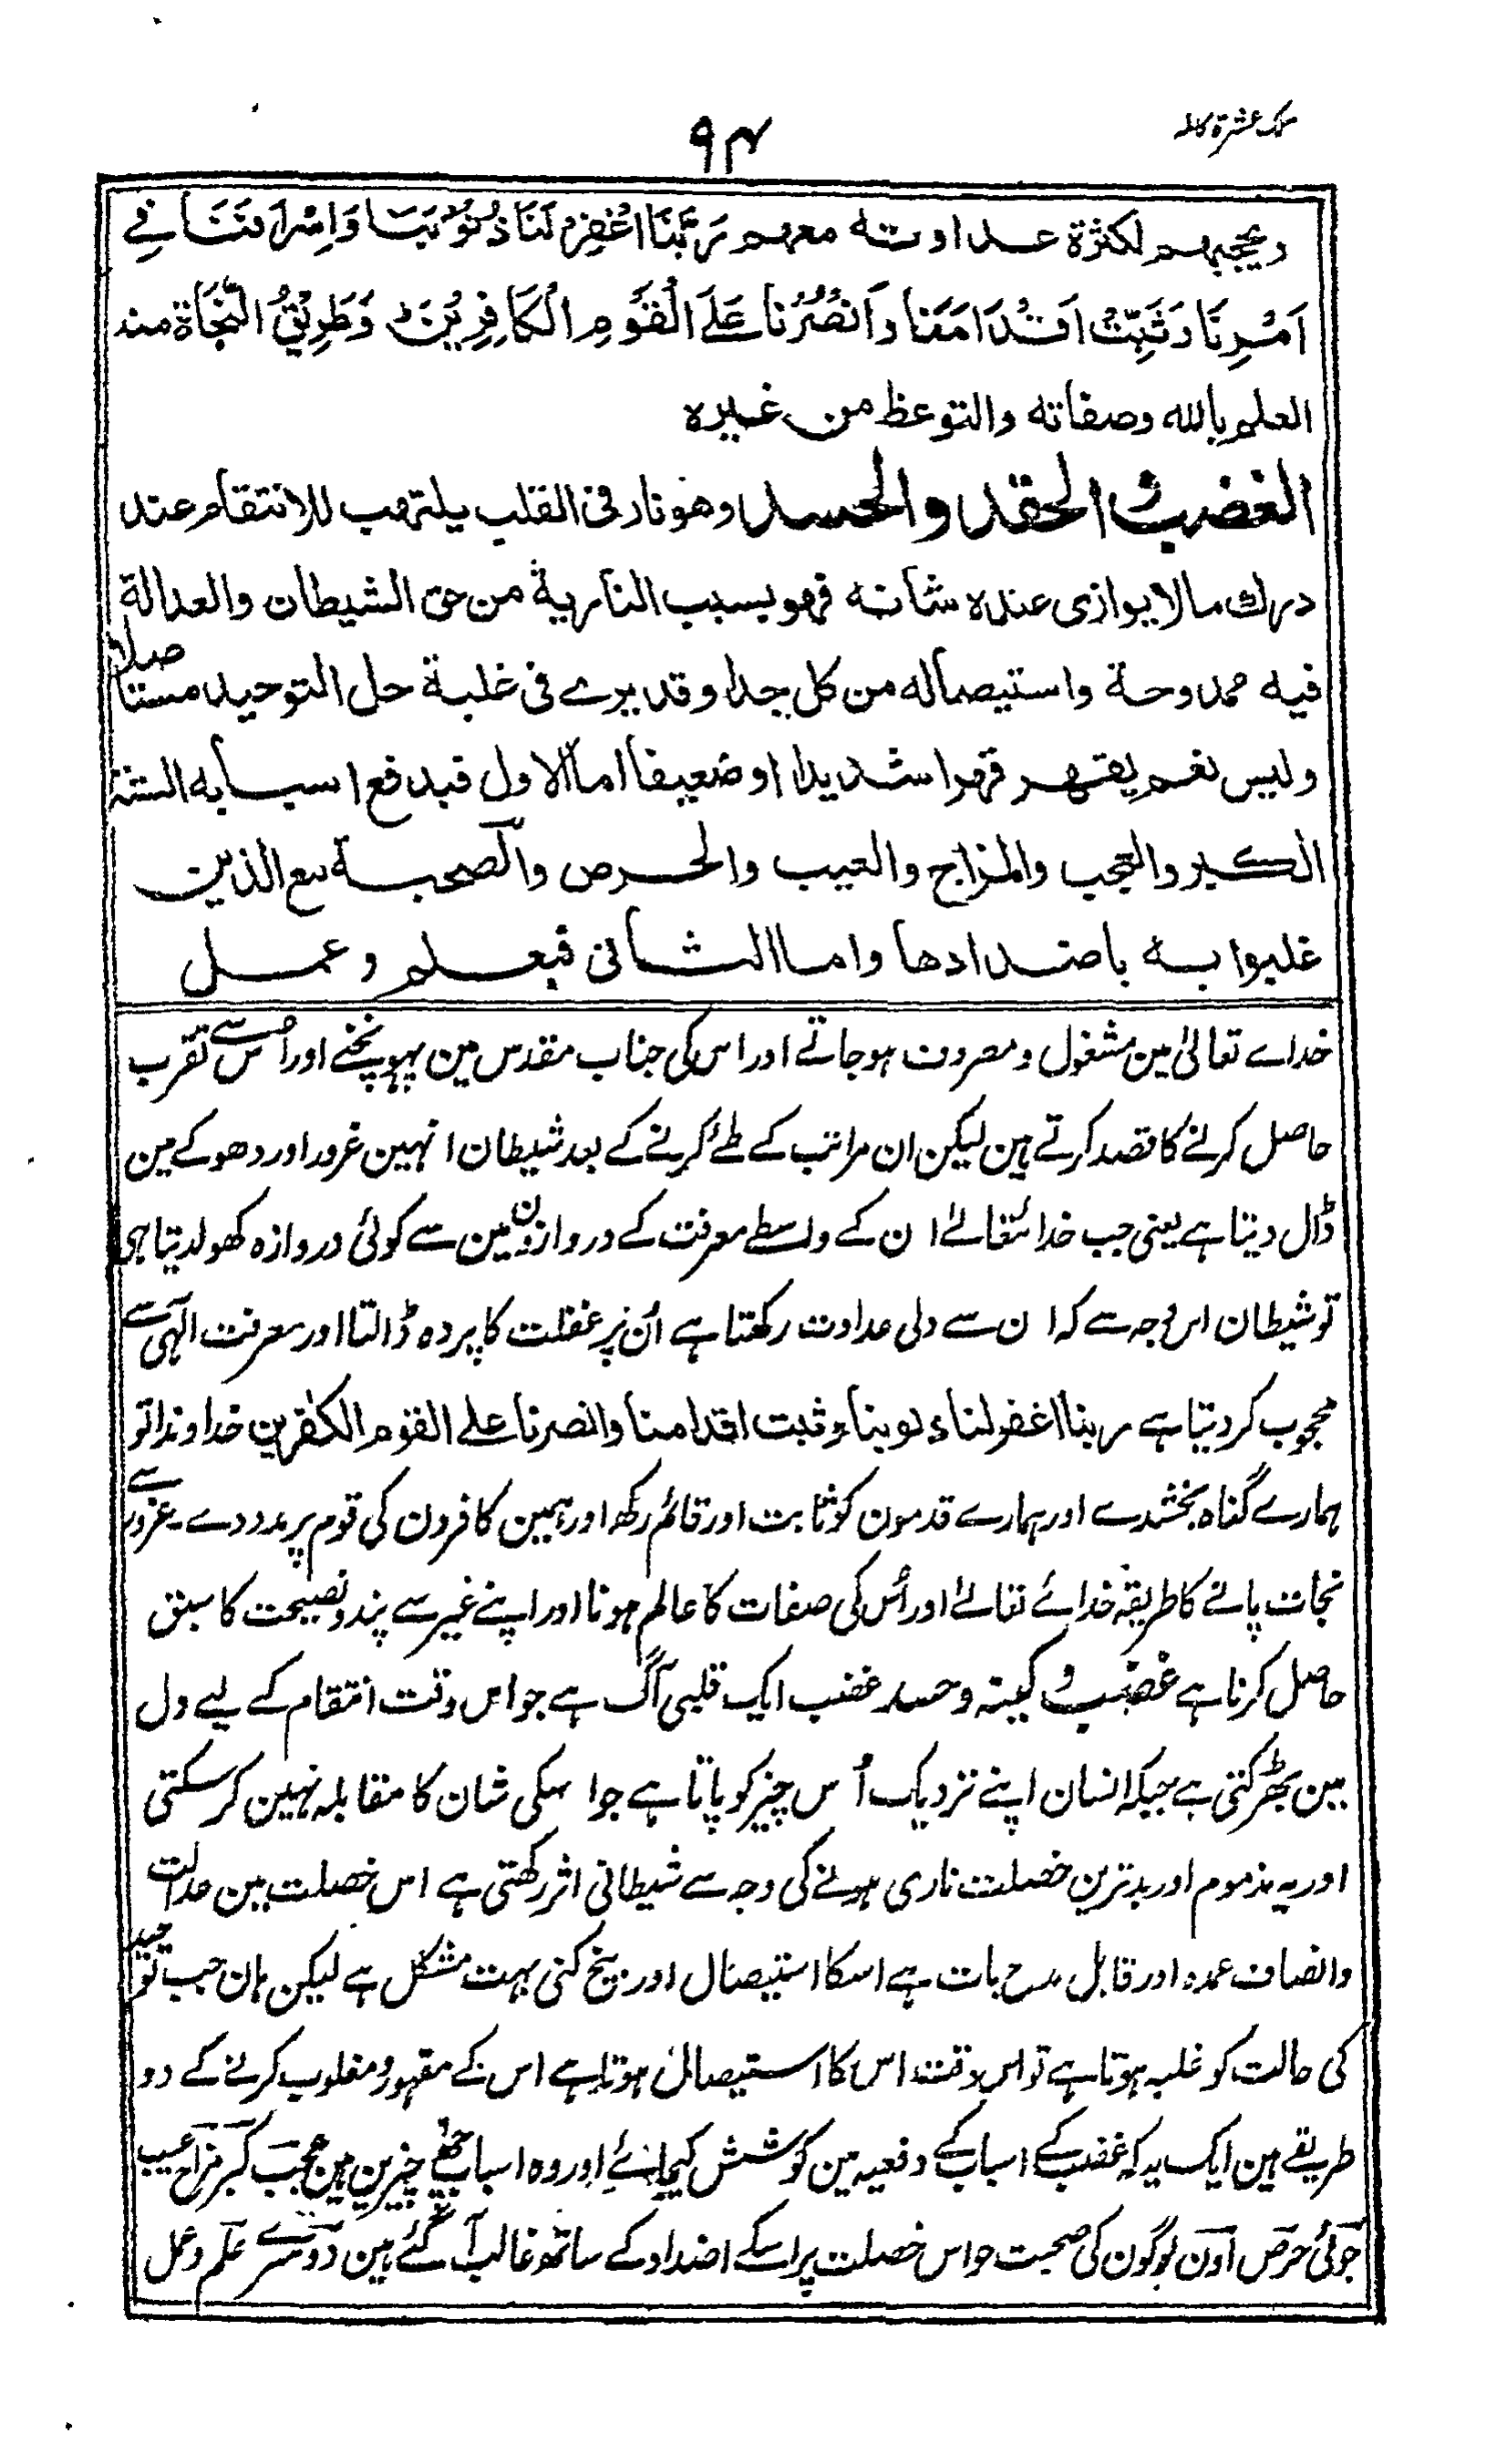 عشرۃ کاملہ
۹۴
ويحجبهم لكثرة عداوته معهم رَبَّنَا اغْفِرْ لَنَا ذُنُوْبَنَا وَاِسْرَافَنَا فِے
اَمْرِنَا وَثَبِّتْ اَقْدَامَنَا وَانْصُرْنَا عَلَے الْقَوْمِ الْكَافِرِيْنَ وَطَرِيْقُ النَّجَاةِ منه
العلم بالله وصفاته والتوعظ من غيره
الغضب والحقد والحسد وهو نار فى القلب يلتهب للانتقام عند
درك مالا يوازى عنده شانه فهو بسبب النارية من حق الشيطان والعدالة
فيه ممدوحة واستيصاله من كل جدا وقد يرے فى غلبة حل التوحيد مستاصلا
وليس نغم يقهر قهرا شديدا او ضعيفا اما الاول فبدفع اسبابه الستة
الكبر والعجب والمزاح والعيب والحرص والصحبة مع الذين
غلبوا به باضدادها واما الثانى فبعلم وعمل
خداے تعالیٰ مین مشغول و مصروف ہوجاتے اور اس کی جناب مقدس مین پہونچنے اور اُس سے تقرب
حاصل کرنے کا قصد کرتے ہین لیکن ان مراتب کے طے کرنے کے بعد شیطان انہین غرور اور دھوکے مین
ڈال دیتا ہے یعنی جب خدائتعالےٰ ان کے واسطے معرفت کے دروازون مین سے کوئی دروازہ کھولدیتا ہی
تو شیطان اس وجہ سے کہ ان سے دلی عداوت رکھتا ہے اُن پر غفلت کا پردہ ڈالتا اور معرفت الٰہی سے
محجوب کردیتا ہے ربنا اغفرلنا ذنوبنا وثبت اقدامنا وانصرنا علے القوم الکٰفرین خداوندا تو
ہمارے گناہ بخشدے اور ہمارے قدمون کو ثابت اور قائم رکھ اور ہمین کافرون کی قوم پر مدد دے۔ غرور سے
نجات پانے کا طریقہ خدائے تعالےٰ اور اُس کی صفات کا عالم ہونا اور اپنے غیر سے پند و نصیحت کا سبق
حاصل کرنا ہے غضب و کینہ و حسد غضب ایک قلبی آگ ہے جو اس وقت انتقام کے لیے دل
مین بھڑکتی ہے جبکہ انسان اپنے نزدیک اُس چیز کو پاتا ہے جو اسکی شان کا مقابلہ نہین کرسکتی
اور یہ مذموم اور بدترین خصلت ناری ہونے کی وجہ سے شیطانی اثر رکھتی ہے اس خصلت مین عدالت
وانصاف عمدہ اور قابل مدح بات ہے اسکا استیصال اور بیخ کنی بہت مشکل ہے لیکن ہان جب توحید
کی حالت کو غلبہ ہوتا ہے تو اس وقت اس کا استیصال ہوتا ہے اس کے مقہور و مغلوب کرنے کے دو
طریقے ہین ایک یہ کہ غضب کے اسباب کے دفعیہ مین کوشش کیجائے اور وہ اسباب چھ چیزین ہین عجب کبر مزاح عیب
جوئی حرص اون لوگون کی صحبت جو اس خصلت پر اسکے اضداد کے ساتھ غالب آگئے ہین دوسرے علم و عمل